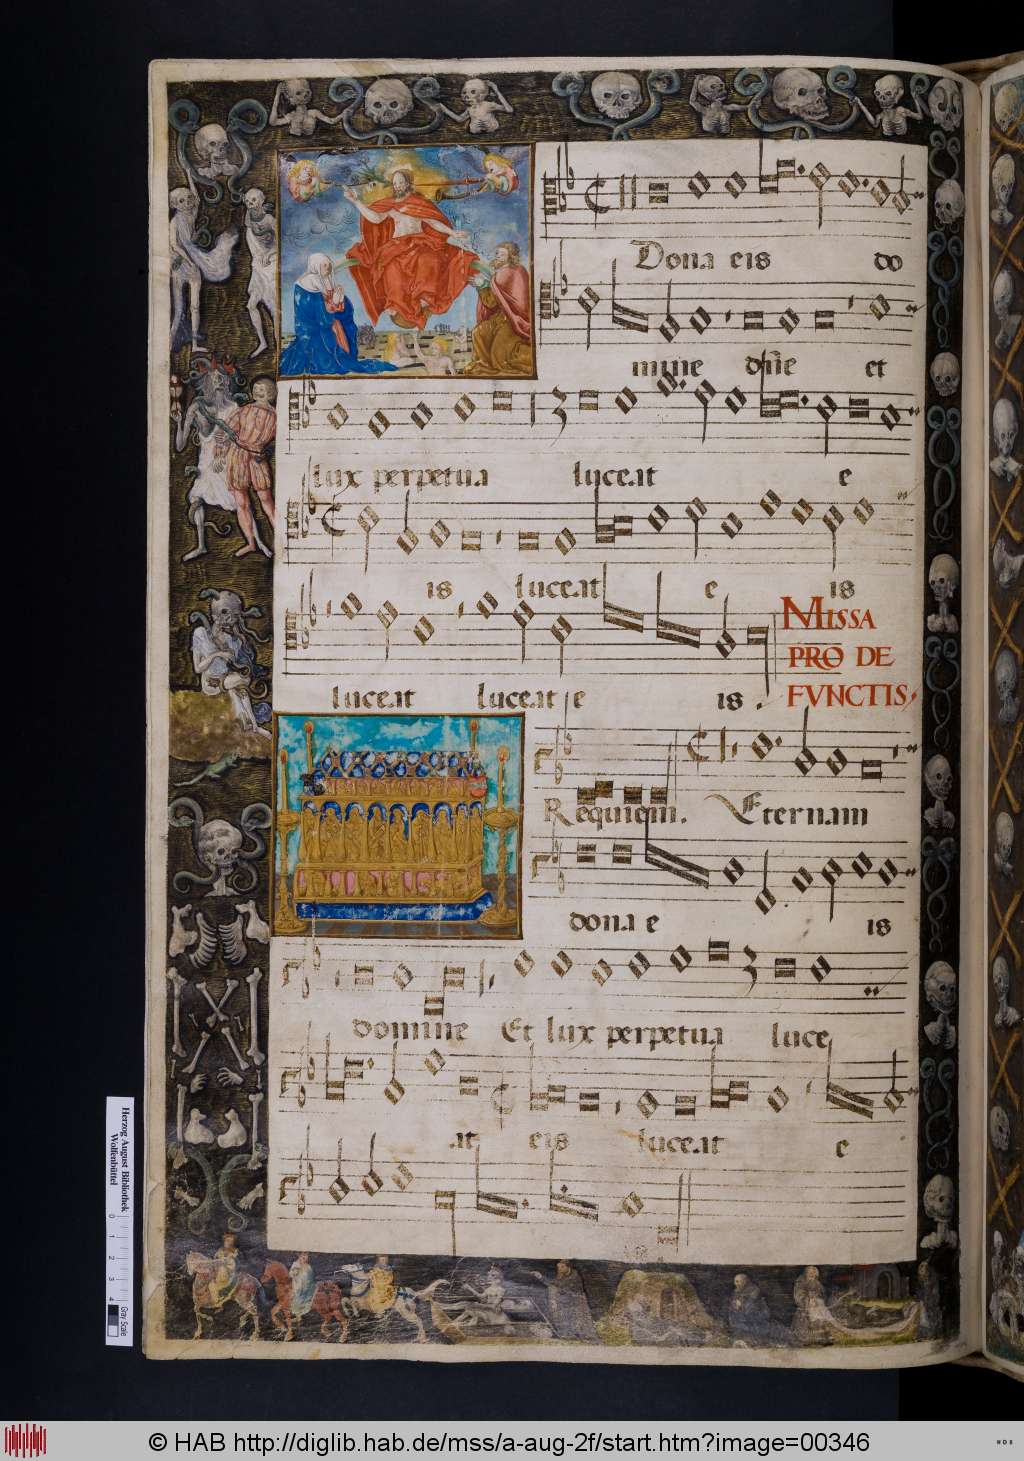 Dona eis do
mine dn̄e et
lux perpetua luceat e
is luceat e is
luceat luceat e is .
MISSA
PRO DE
FVNCTIS
Requiem. Eternam
dona e is
domine Et lux perpetua luce
at eis luceat e
Herzog August Bibliothek
Wolfenbüttel
0 1 2 3 4
Gray Scale
© HAB http://diglib.hab.de/mss/a-aug-2f/start.htm?image=00346